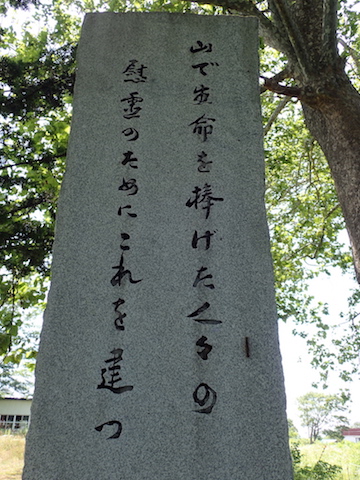 山で生命を捧げた人々の
慰霊のためにこれを建つ